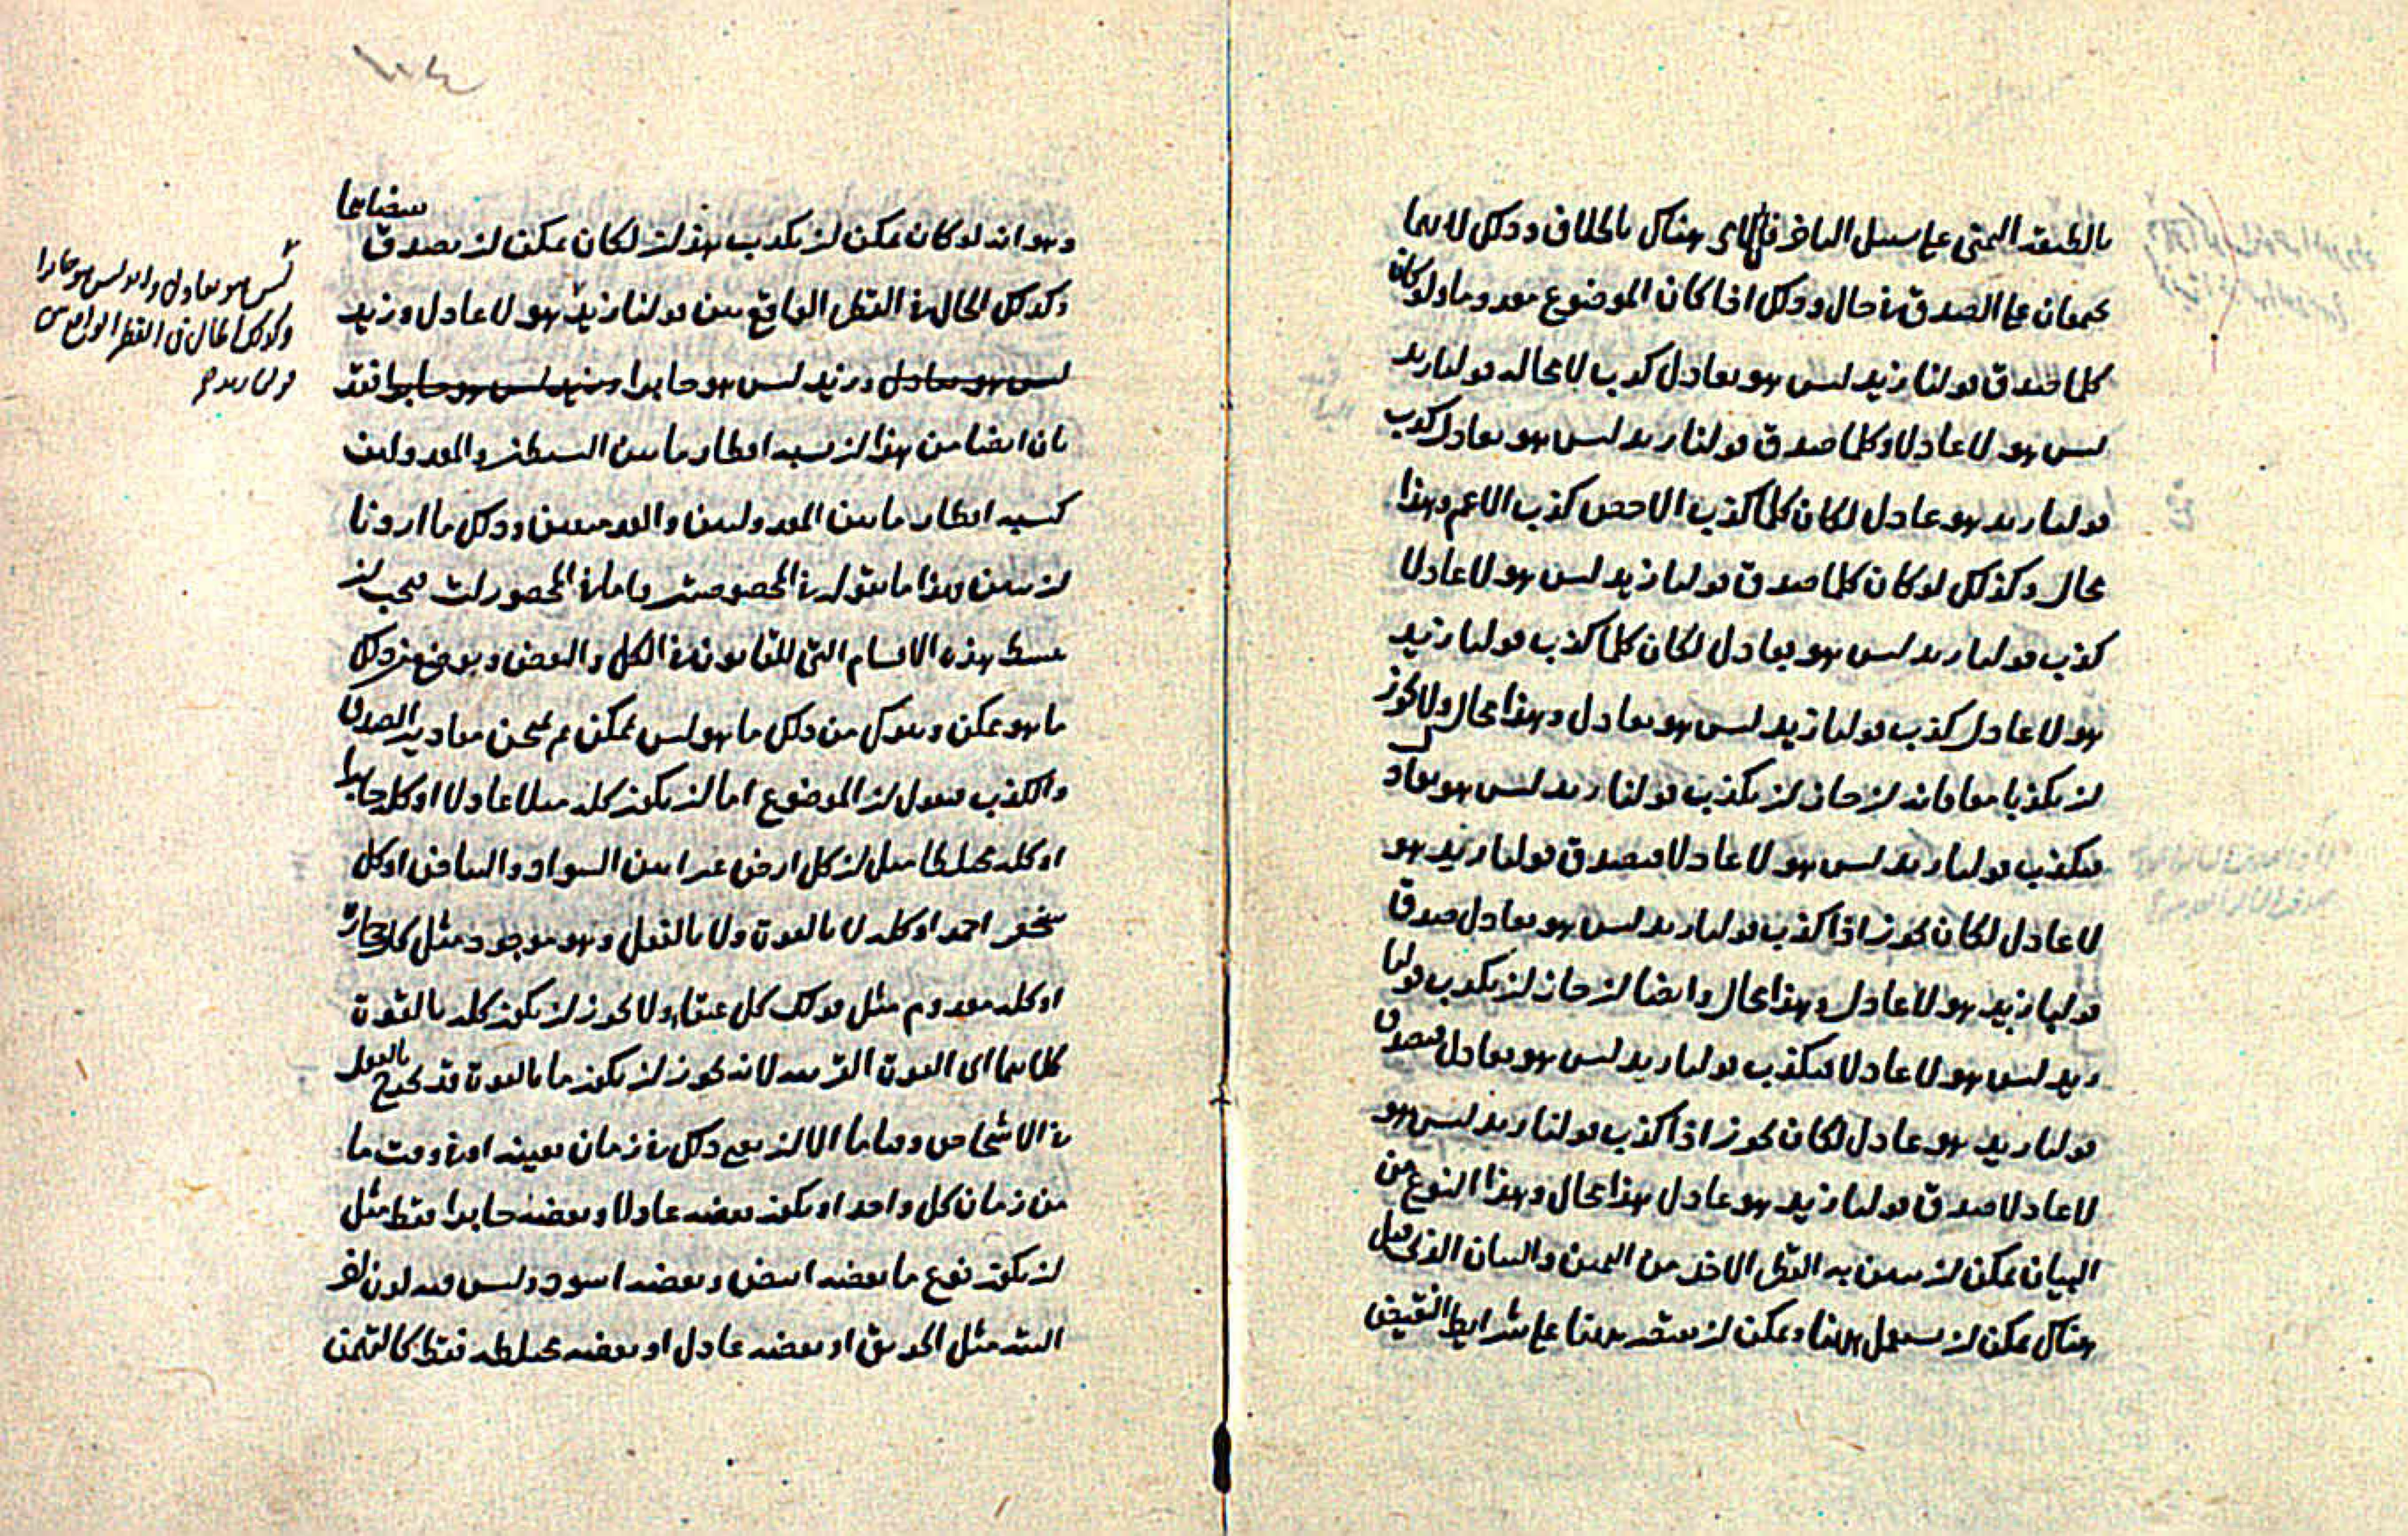 بالطبقة اليمنى على سبيل التنافر فالحال هناك بالخلاف وذلك لانهما
يجتمعان على الصدق في حال وذلك اذا كان الموضوع معدوما ولو كان
كلما صدق قولنا زيد ليس هو بعادل كذب لا محاله قولنا زيد
ليس هو لا عادلا وكلما صدق قولنا زيد ليس هو بعادل كذب
قولنا زيد هو عادل لكان كلما كذب الاخص كذب الاعم وهذا
محال وكذلك لو كان كلما صدق قولنا زيد ليس هو لا عادلا
كذب قولنا زيد ليس هو بعادل لكان كلما كذب قولنا زيد
هو لا عادل كذب قولنا زيد ليس هو بعادل وهذا محال ولا يجوز
ان يكذبا معا فانه ان جاز ان يكذب قولنا زيد ليس هو بعادل
فيكذب قولنا زيد ليس هو لا عادلا فيصدق قولنا زيد هو
لا عادل لكان يجوز اذا كذب قولنا زيد ليس هو بعادل صدق
قولنا زيد هو لا عادل وهذا محال وايضا ان جاز ان يكذب قولنا
زيد ليس هو لا عادلا فيكذب قولنا زيد ليس هو بعادل فيصدق
قولنا زيد هو عادل لكان يجوز اذا كذب قولنا زيد ليس هو
لا عادلا صدق قولنا زيد هو عادل هذا محال وهذا النوع من
البيان يمكن ان يبين به القطر الاخذ من اليمين والبيان الذي قيل
هناك يمكن ان يستعمل ههنا ويمكن ان يقتصر ههنا على شرايط النقيض
١٠٤
وهو انه لو كان يمكن ان يكذب هذان لكان يمكن ان يصدق نقيضاهما
وكذلك الحال في القطر الواقع بين قولنا زيد هو لا عادل وزيد
ليس هو بعادل وزيد ليس هو جايرا وزيد ليس هو جايرا فقد
بان ايضا من هذا ان نسبه اقطار ما بين البسيطتين والمعدولتين
كنسبه اقطار ما بين المعدولتين والعدميتين وذلك ما اردنا
ان نبين وهذا ما نقوله في المخصوصات واما في المحصورات فيجب ان
نبسط هذه الاقسام التي للقانون في الكل والبعض ونوضح من ذلك
ما هو ممكن ونترك من ذلك ما هو ليس بممكن ثم نمتحن مقادير الصدق
والكذب فنقول ان الموضوع اما ان يكون كله مثلا عادلا او كله جايرا
او كله مختلطا مثل ان كل ارض غبرا بين السواد والبياض او كل
شخص احمر او كله لا بالقوة ولا بالفعل وهو موجود مثل كل حجارة
او كله معدوم مثل قولك كل عنقا ولا يجوز ان يكون كله بالقوة
كلاهما اي القوة القريبه لانه يجوز ان يكون ما بالقوة قد يخرج بالفعل
في الاشخاص وقتا ما الا ان يعنى ذلك في زمان بعينه او في وقت ما
من زمان كل واحد او يكون بعضه عادلا وبعضه جايرا فقط مثل
ان يكون نوع ما بعضه ابيض وبعضه اسود وليس فيه لون اخر
البته مثل او بعضه عادل او بعضه مختلط فقط
ليس هو بعادل وزيد ليس هو جايرا
وكذلك الحال في القطر الواقع بين
قولنا زيد هو